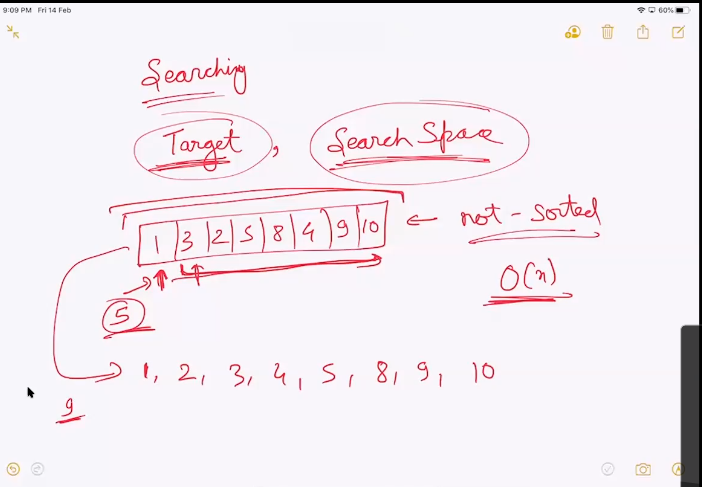 9:09 PM Fri 14 Feb 60%
Searching
Target, Search Space
1 3 2 5 8 4 9 10 ← not-sorted
O(n)
5
1, 2, 3, 4, 5, 8, 9, 10
9